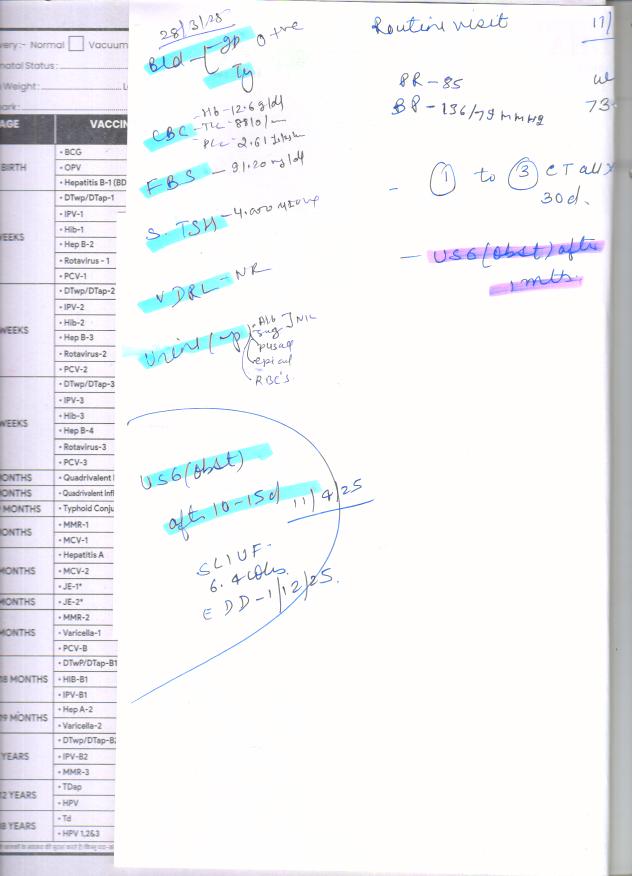 very:- Normal Vacuum
natal Status:
Weight:
ark:
AGE VACCIN
BIRTH
• BCG
• OPV
• Hepatitis B-1 (BD
WEEKS
• DTwp/DTap-1
• IPV-1
• Hib-1
• Hep B-2
• Rotavirus - 1
• PCV-1
WEEKS
• DTwp/DTap-2
• IPV-2
• Hib-2
• Hep B-3
• Rotavirus-2
• PCV-2
WEEKS
• DTwp/DTap-3
• IPV-3
• Hib-3
• Hep B-4
• Rotavirus-3
• PCV-3
ONTHS • Quadrivalent I
ONTHS • Quadrivalent Infl
MONTHS • Typhoid Conju
ONTHS
• MMR-1
• MCV-1
MONTHS
• Hepatitis A
• MCV-2
• JE-1*
MONTHS • JE-2*
MONTHS
• MMR-2
• Varicella-1
• PCV-B
18 MONTHS
• DTwP/DTap-B1
• HIB-B1
• IPV-B1
19 MONTHS
• Hep A-2
• Varicella-2
YEARS
• DTwp/DTap-B2
• IPV-B2
• MMR-3
12 YEARS
• TDap
• HPV
8 YEARS
• Td
• HPV 1,2&3
28/3/25
Bld gp O +ve
Ty
CBC - Hb - 12.6 g/dl
- TLC - 8810/
- PLC - 2.61
FBS - 91.20 mg/dl
S. TSH - 4.000
VDRL - NR
Urine
Alb
Sug ] NIL
pus
epi
RBC's
USG (obst)
aft 10-15d 11/4/25
SLIUF
6.4
EDD - 1/12/25.
Routine visit 11/
PR - 85
BP - 136/79 mmHg 73
- ① to ③ CT all X
30d.
- USG (obst) after
1 mts.